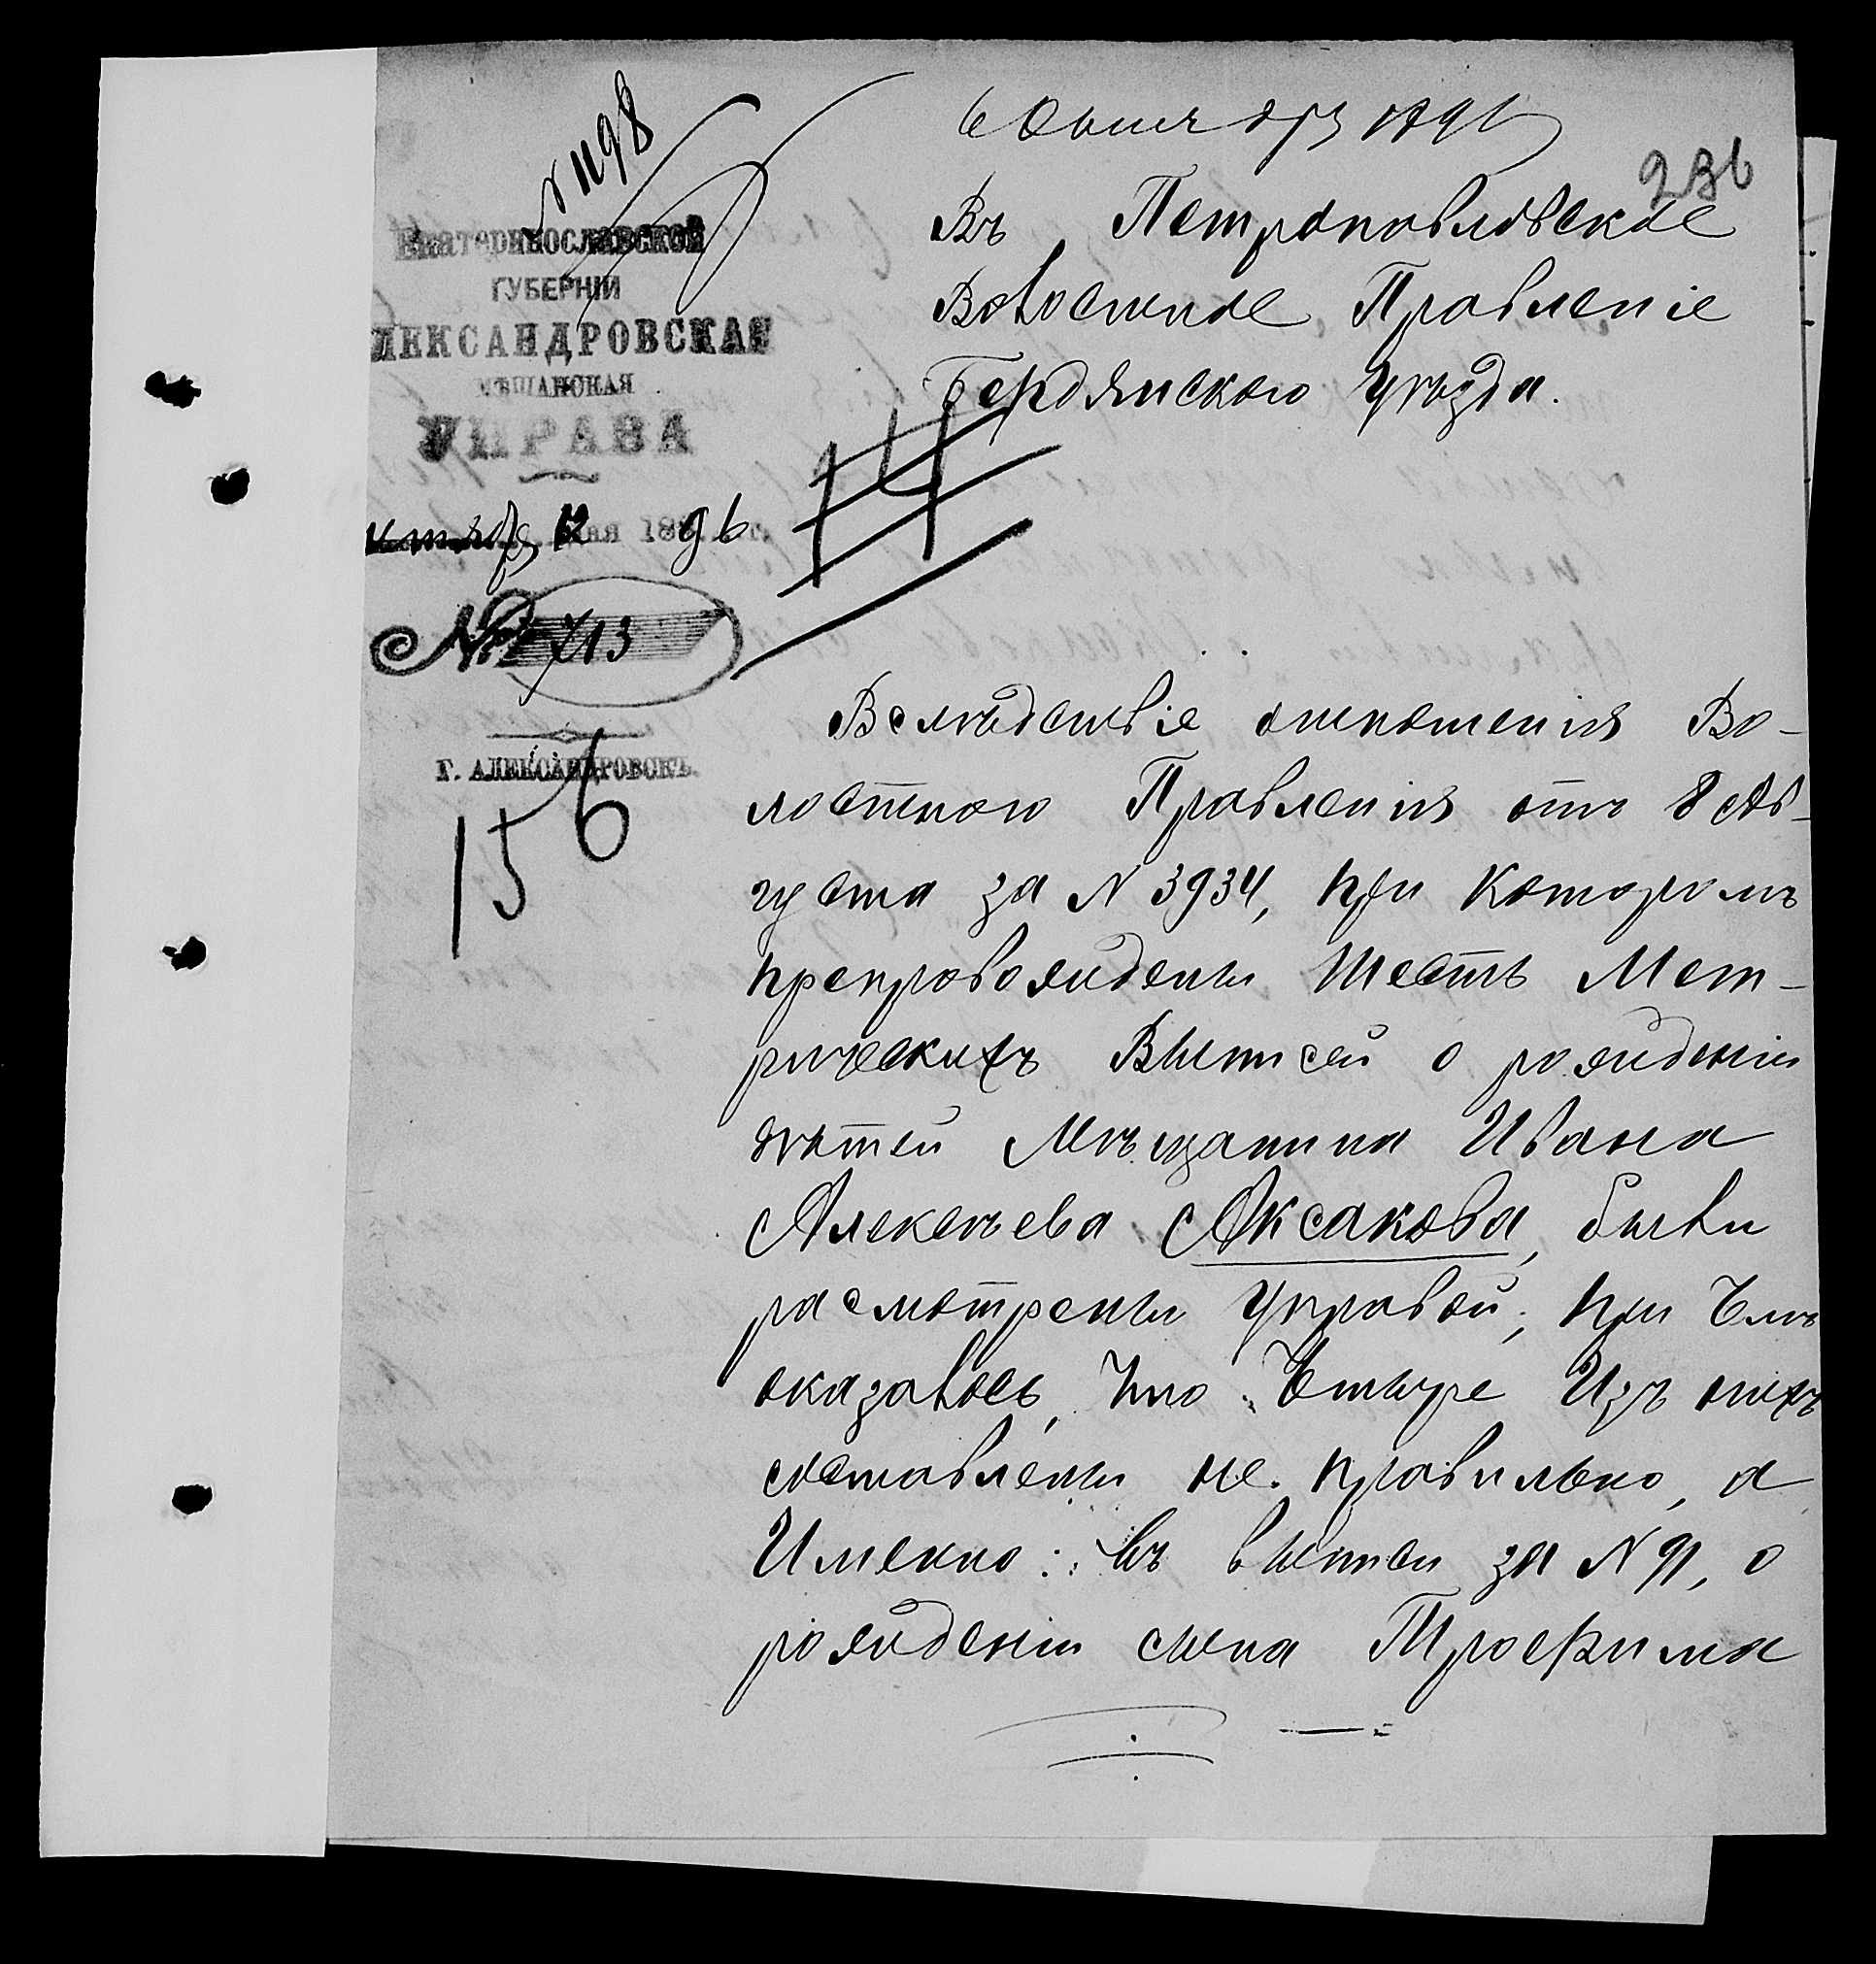 N 1198
236
Екатеринославской
ГУБЕРНІИ
АЛЕКСАНДРОВСКАЯ
МѢЩАНСКАЯ
УПРАВА
96
№ 1713
г. АЛЕКСАНДРОВСКЪ.
156
14
Въ Петропавловское
Волостное Правленіе
Бердянского Уѣзда.
Вслѣдствіе отношенія Во-
лостного Правленія отъ 8 Ав-
густа за N 3934, при которомъ
препровождены шесть Мет-
рическихъ Выписей о рожденіи
дѣтей Мѣщанина Ивана
Алексѣева Аксакова, были
расмотрены Управой, при чемъ
оказалось, что четыре Изъ нихъ
составлены не правильно, а
Имекно: въ выписи за N 91, о
рожденіи сына Трофима